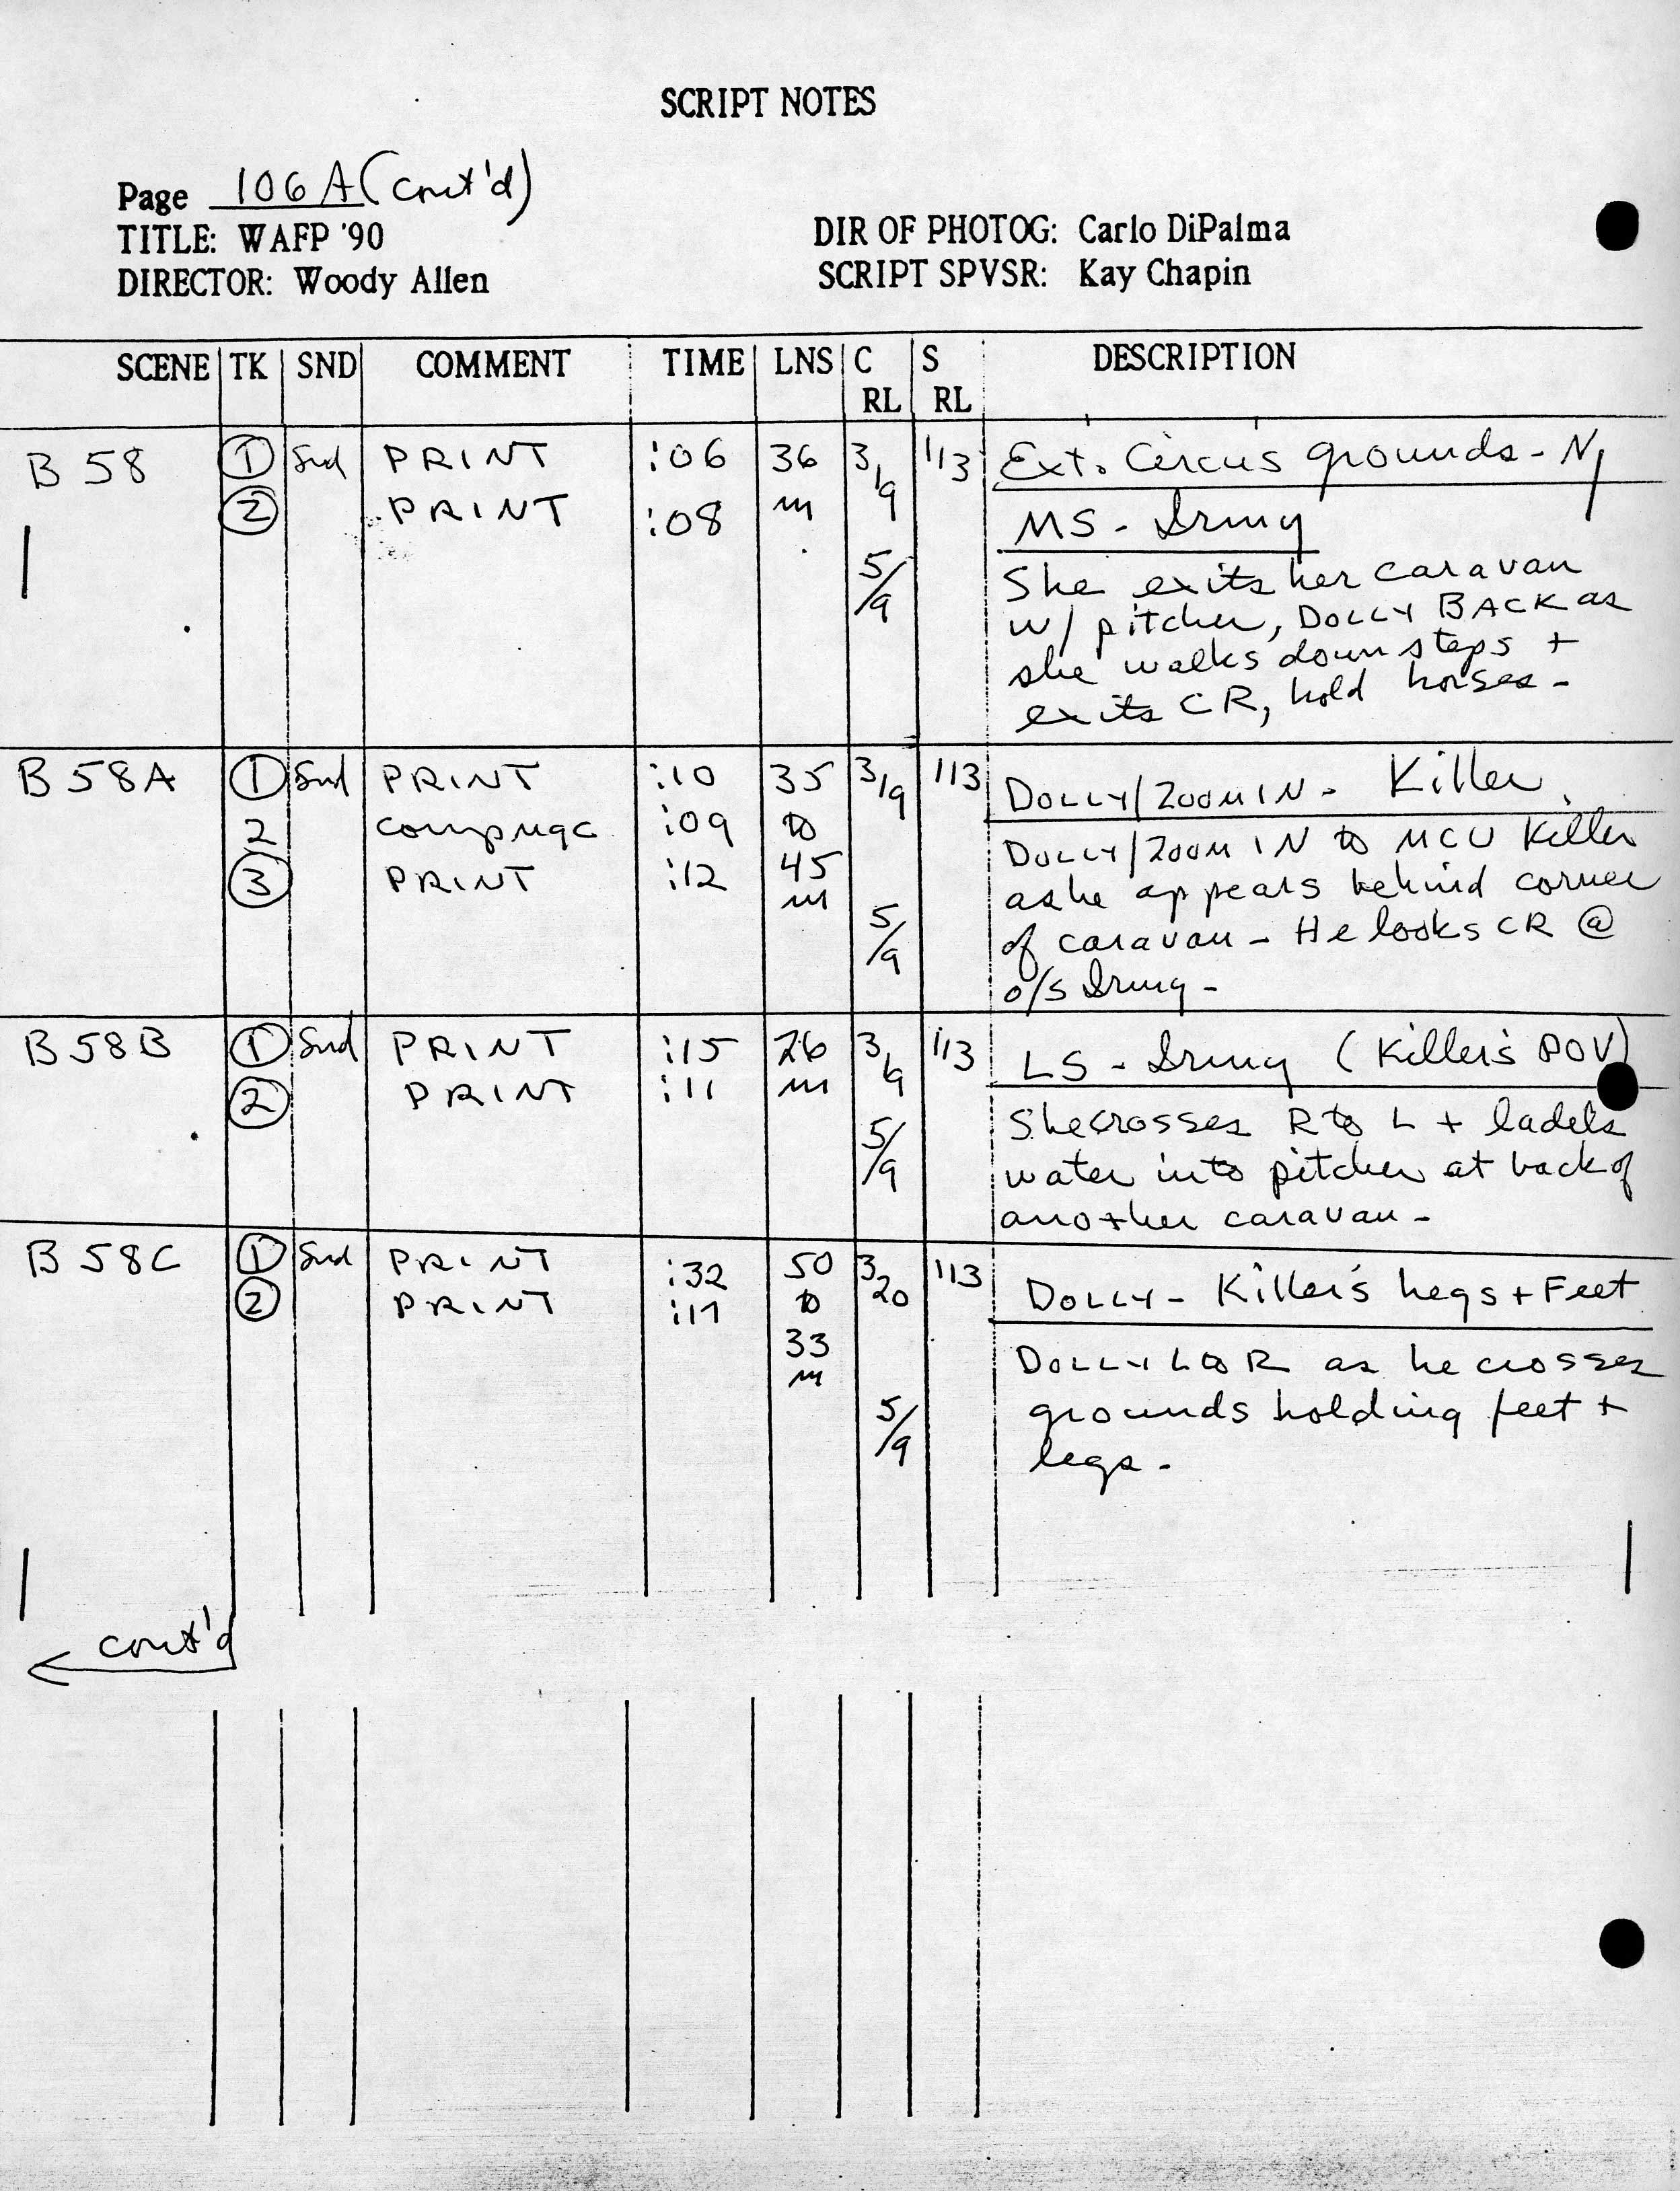 SCRIPT NOTES
Page 106A (cont'd)
TITLE: WAFP '90
DIRECTOR: Woody Allen
DIR OF PHOTOG: Carlo DiPalma
SCRIPT SPVSR: Kay Chapin
SCENE TK SND COMMENT TIME LNS C RL S RL DESCRIPTION
B 58 1 Snd PRINT :06 36 3/9 113 Ext. Circus grounds - N
2 PRINT :08 m
MS - Irmy
5/9 She exits her caravan
w/ pitcher, DOLLY BACK as
she walks down steps +
exits CR, hold horses -
B 58A 1 Snd PRINT :10 35 3/9 113 DOLLY/ZOOM IN - Killer
2 comp :09 to DOLLY/ZOOM IN to MCU Killer
3 PRINT :12 45 as he appears behind corner
m
5/9 of caravan - He looks CR @
o/s Irmy -
B 58B 1 Snd PRINT :15 26 3/9 113 LS - Irmy (Killer's POV)
2 PRINT :11 m
5/9 She crosses R to L + ladels
water into pitcher at back of
another caravan -
B 58C 1 Snd PRINT :32 50 3/20 113 DOLLY - Killer's Legs + Feet
2 PRINT :17 to
33 DOLLY L to R as he crosses
m
5/9 grounds holding feet +
legs -
cont'd